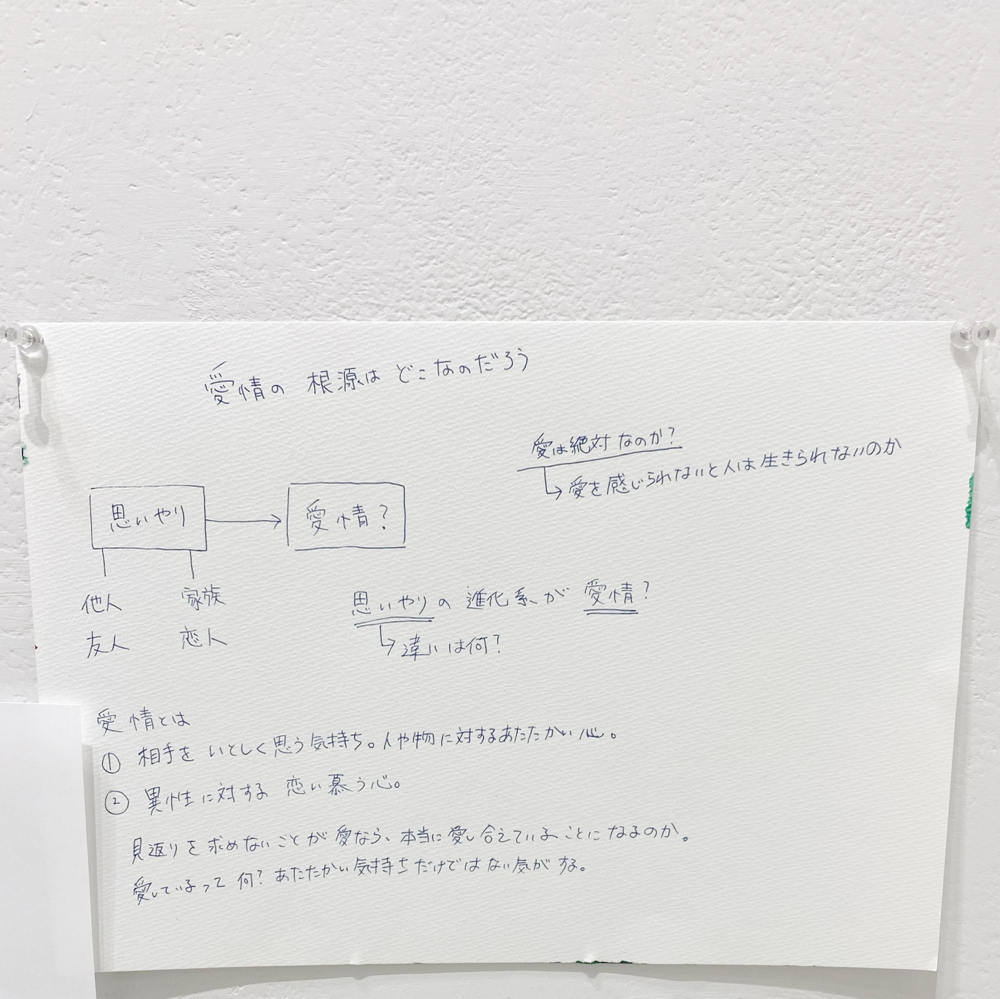 愛情の 根源は どこなのだろう
愛は絶対なのか?
愛を感じられないと人は生きられないのか
思いやり
愛情?
他人 家族
友人 恋人
思いやりの 進化系が 愛情?
違いは何?
愛情とは
① 相手を いとしく思う気持ち。人や物に対するあたたかい心。
② 異性に対する 恋い慕う心。
見返りを求めないことが愛なら、本当に愛し合えていることになるのか。
愛しているって何? あたたかい気持ちだけではない気がする。